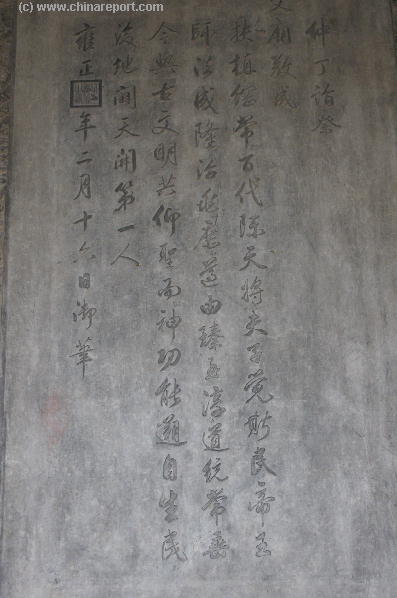 (c) www.chinareport.com
仲丁詣祭
文廟敬成
扶植綱常百代陳天將夫子覺斯民帝王
師法成隆治兆庶遵由臻至淳道統常垂
今與古文明共仰聖而神功能遡自生民
後地闢天開第一人
雍正年二月十六日御筆